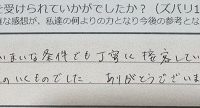 を受けられていかがでしたか？（ズバリ1
直な感想が、私達の何よりの力となり今後の参考とな
いまいな条件でも丁寧に接客してい
のいくものでした。ありがとうございま